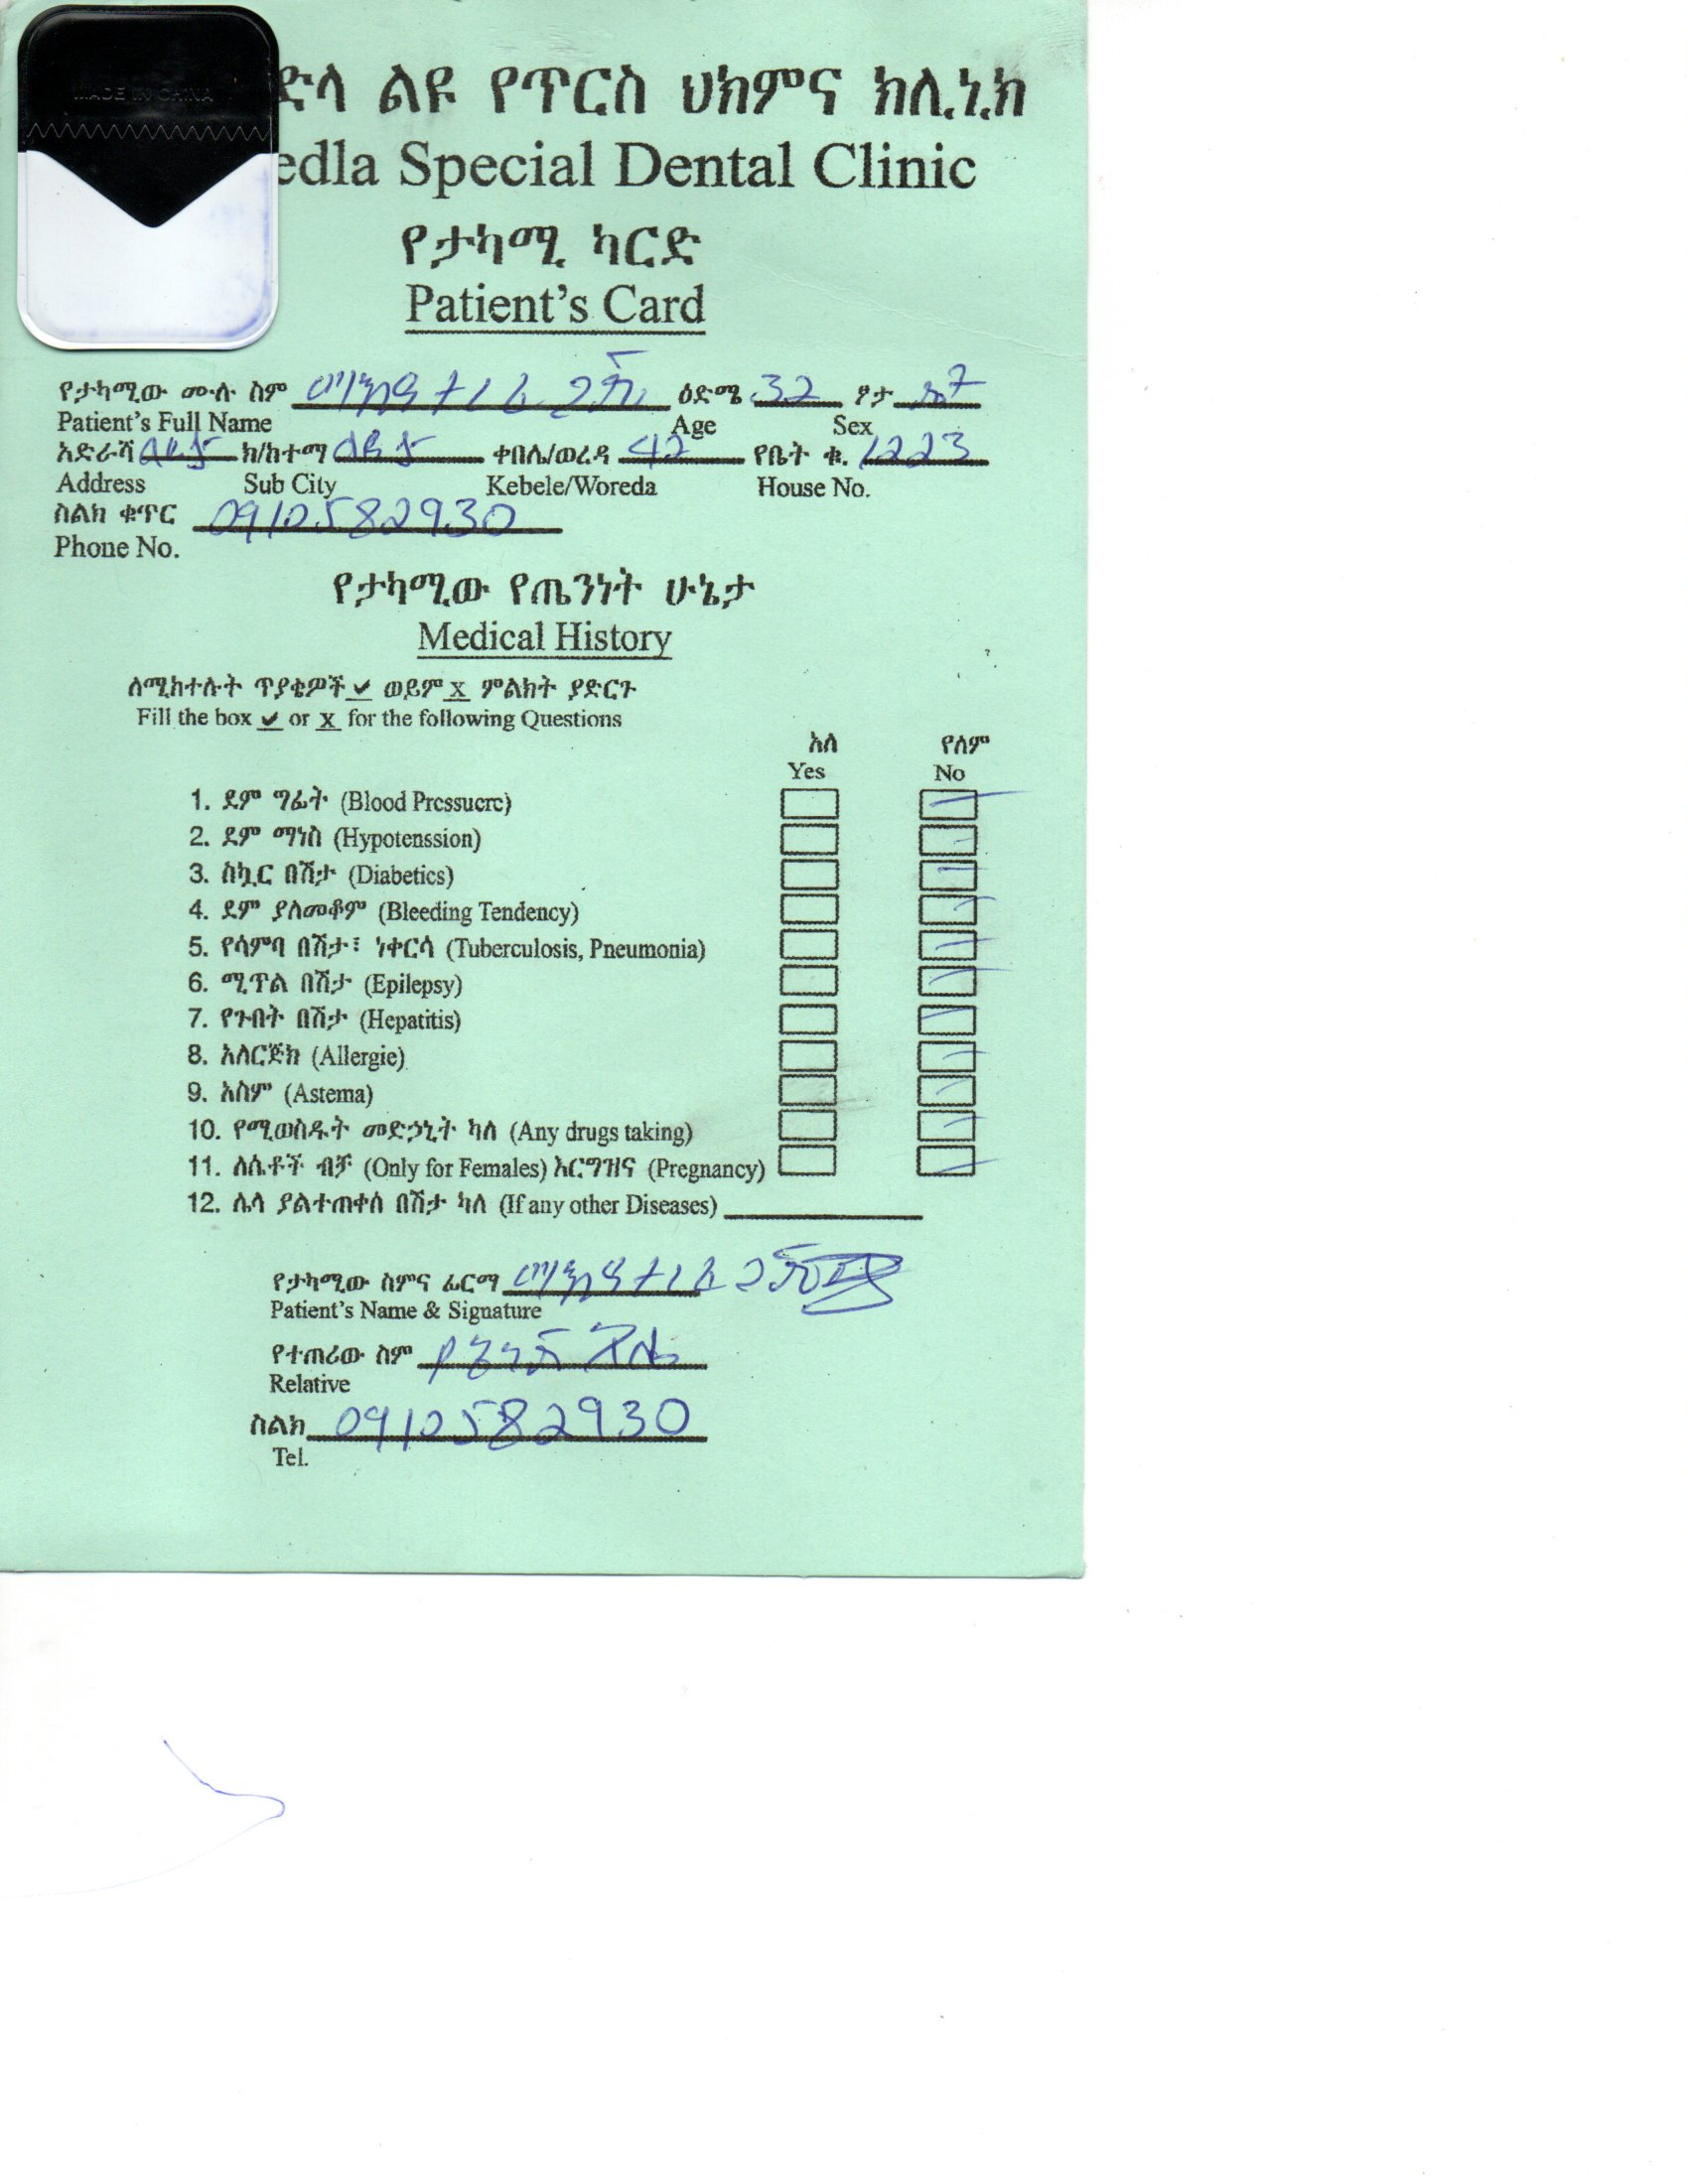 MADE IN CHINA
ድላ ልዩ የጥርስ ህክምና ክሊኒክ
edla Special Dental Clinic
የታካሚ ካርድ
Patient's Card
የታካሚው ሙሉ ስም ዕድሜ 32 ፆታ
Patient's Full Name Age Sex
አድራሻ ክ/ከተማ ቀበሌ/ወረዳ የቤት ቁ. 1223
Address Sub City Kebele/Woreda House No.
ስልክ ቁጥር 0910582930
Phone No.
የታካሚው የጤንነት ሁኔታ
Medical History
ለሚከተሉት ጥያቄዎች ✔ ወይም X ምልክት ያድርጉ
Fill the box ✔ or X for the following Questions
አለ የለም
Yes No
1. ደም ግፊት (Blood Pressuere)
2. ደም ማነስ (Hypotenssion)
3. ስኳር በሽታ (Diabetics)
4. ደም ያለመቆም (Bleeding Tendency)
5. የሳምባ በሽታ፣ ነቀርሳ (Tuberculosis, Pneumonia)
6. ሚጥል በሽታ (Epilepsy)
7. የጉበት በሽታ (Hepatitis)
8. አለርጅክ (Allergie)
9. አስም (Astema)
10. የሚወስዱት መድኃኒት ካለ (Any drugs taking)
11. ለሴቶች ብቻ (Only for Females) እርግዝና (Pregnancy)
12. ሌላ ያልተጠቀሰ በሽታ ካለ (If any other Diseases)
የታካሚው ስምና ፊርማ
Patient's Name & Signature
የተጠሪው ስም
Relative
ስልክ 0910582930
Tel.